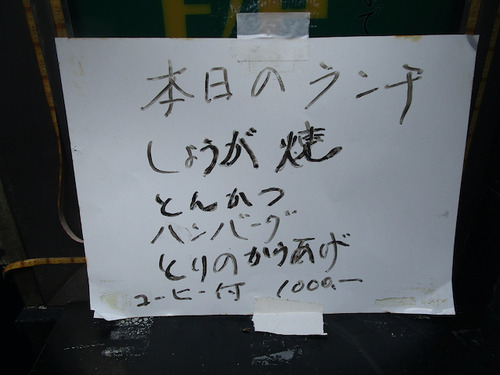 本日のランチ
しょうが焼
とんかつ
ハンバーグ
とりのからあげ
コーヒー付 1000.—